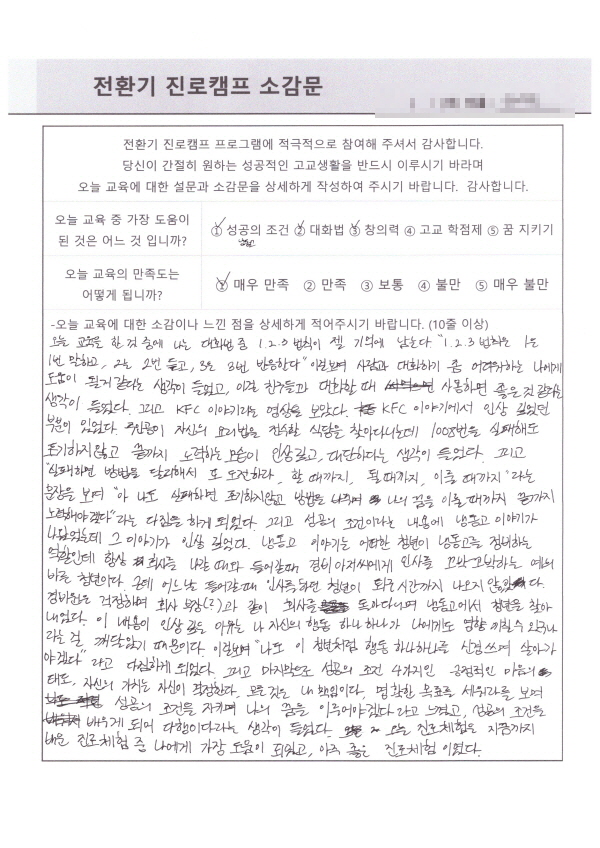 전환기 진로캠프 소감문
전환기 진로캠프 프로그램에 적극적으로 참여해 주셔서 감사합니다.
당신이 간절히 원하는 성공적인 고교생활을 반드시 이루시기 바라며
오늘 교육에 대한 설문과 소감문을 상세하게 작성하여 주시기 바랍니다. 감사합니다.
오늘 교육 중 가장 도움이
된 것은 어느 것 입니까?
① 성공의 조건 ② 대화법 ③ 창의력 ④ 고교 학점제 ⑤ 꿈 지키기
오늘 교육의 만족도는
어떻게 됩니까?
① 매우 만족 ② 만족 ③ 보통 ④ 불만 ⑤ 매우 불만
-오늘 교육에 대한 소감이나 느낀 점을 상세하게 적어주시기 바랍니다. (10줄 이상)
오늘 교육을 한 것 중에 나는 대화법 중 1.2.3 법칙이 젤 기억에 남는다 "1.2.3 법칙은 1은
1번 말하고, 2는 2번 듣고, 3은 3번 반응한다" 이걸보며 사람과 대화하기 좀 어려워하는 나에게
도움이 될거 같다는 생각이 들었고, 이걸 친구들과 대화할 때 사용하면 좋은것 같다는
생각이 들었다. 그리고 KFC 이야기라는 영상을 보았다. KFC 이야기에서 인상 깊었던
부분이 있었다. 주인공이 자신의 요리법을 전수할 식당을 찾아다니는데 100번을 실패해도
포기하지않고 끝까지 노력하는 모습이 인상 깊고, 대단하다는 생각이 들었다. 그리고
"실패하면 방법을 달리해서 또 도전하라, 할 때까지, 될 때까지, 이룰 때까지"라는
문장을 보며 "아 나도 실패하면 포기하지않고 방법을 나의 꿈을 이룰 때까지 끝까지
노력해야겠다"라는 다짐을 하게 되었다. 그리고 성공의 조건이라는 내용에 냉동고 이야기가
나왔었는데 그 이야기가 인상 깊었다. 냉동고 이야기는 어떠한 청년이 냉동고를 정비하는
역할인데 항상 회사를 나갈 때와 들어갈때 경비 아저씨에게 인사를 꼬박꼬박하는 예의
바른 청년이다. 근데 어느날 들어갈때 인사를 하던 청년이 퇴근 시간까지 나오지 않았다.
경비원은 걱정하며 회사 부장(?)과 같이 회사를 돌아다니며 냉동고에서 청년을 찾아
내었다. 이 내용이 인상 깊은 이유는 나 자신의 행동 하나 하나가 나에게도 영향 끼칠수 있구나
라는 걸 깨달았기 때문이다. 이걸보며 "나도 이 청년처럼 행동 하나하나를 신경쓰며 살아가
야겠다"라고 다짐하게 되었다. 그리고 마지막으로 성공의 조건 4가지인 긍정적인 마음의
태도, 자신의 가치는 자신이 결정한다. 모든 것은 내 책임이다. 명확한 목표를 세워라를 보며
성공의 조건을 지키며 나의 꿈을 이루어야겠다라고 느꼈고, 성공의 조건을
배우게 되어 다행이다라는 생각이 들었다. 오늘 진로체험은 지금까지
배운 진로체험 중 나에게 가장 도움이 되었고, 아주 좋은 진로체험이었다.